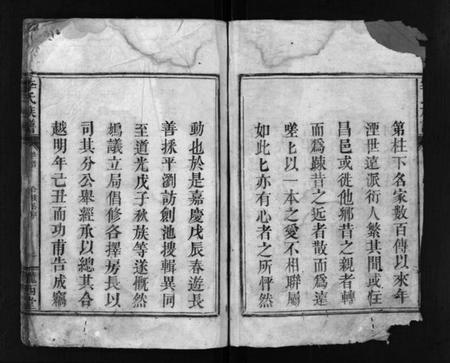 第柱下名家數百傳以來年
湮世遠派衍人繁其間或在
昌邑或徙他鄉昔之親者轉
而為踈昔之近者散而為遠
嗟乎以一本之愛不相聯屬
如此匕亦有心者之所怦然
李氏族譜
動也於是嘉慶戊辰春遊長
善採平瀏訪創池搜輯異同
至道光戊子秋族等遂慨然
塢議立局倡修各擇房長以
司其分公舉經承以總其合
越明年己丑而功甫告成竊